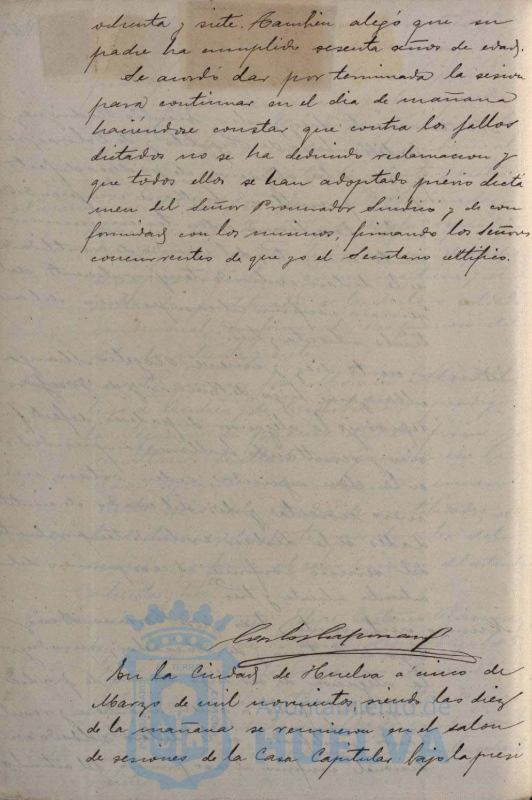 ochenta y siete. Tambien alegó que su
padre ha cumplido sesenta años de edad.
Se acordó dar por terminada la sesion
para continuar en el dia de mañana
haciéndose constar que contra los fallos
dictados no se ha deducido reclamacion y
que todos ellos se han adoptado prévio dictá
men del Señor Procurador Sindico, y de con
formidad con los mismos, firmando los Señores
concurrentes de que yo el Secretario certifico.
En la Ciudad de Huelva á cinco de
Marzo de mil novecientos siendo las diez
de la mañana se reunieron en el salon
de sesiones de la Casa Capitular bajo la presi
Ayuntamiento de
HUELVA